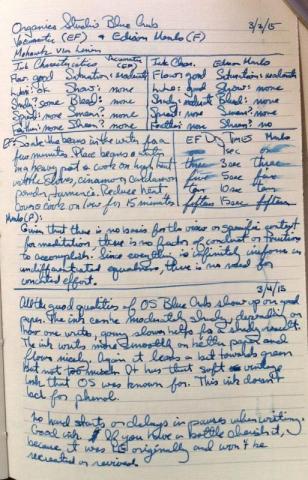 Organics Studio Blue Aub 3/2/15
Vacumatic (EF) & Edison Menlo (F)
Mohawk via Linen
Ink Characteristics Vacumatic (EF) Ink Char. Edison Menlo
Flow: good Saturation: moderate Flow: good Saturation: moderate
Lube: ok Show: none Lube: good Show: none
Shady? some Bleed: none Shady: moderate Bleed: none
Spread: none Smear: none Spread: none Smear: none
Feather: none Sheen? none Feather: none Sheen: no
EF Soak the beans in the water for a EF Dry Times Menlo
few minutes. Place beans & water 1sec
in a heavy pot & cook on high heat three 3 sec three
whole cloves, cinnamon & cardamom five 5 sec five
powder, turmeric. Reduce heat ten 10 sec ten
Cover cook on low for 15 minutes fifteen 15 sec fifteen
Menlo (F):
Given that there is no basis for the view or specific content
for meditation, there is no factor of conduct or fruition
to accomplish. Since everything is infinitely uniform as
undifferentiated equalness, there is no need for
concerted effort.
3/4/15
All the good qualities of OS Blue Aub show up on good
paper. The ink can be moderately shady, depending on
how one writes, going slower helps for a shady result
The ink writes more smoothly on better paper and
flows nicely. Again it leans a bit towards green
but not too much. It has that soft vintage
look that OS was known for. This ink doesn't
lack for phenol.
No hard starts or delays in pauses when writing.
Good ink. If you have a bottle cherish it,
because it was LE originally and won't be
recreated or revived.